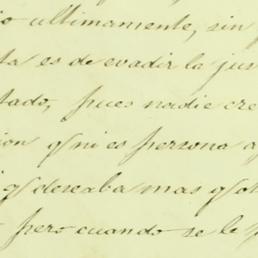 o ultimamente, sin
ta es de evadir la jus
tado, pues nadie cre
ion q/ ni es persona a
i q/ deseaba mas q/ ot
pero cuando se le p